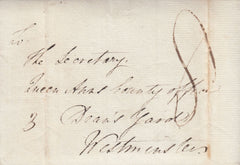 To
The Secretary
Queen Anns bounty office
3 Dean's Yard
Westminster
8